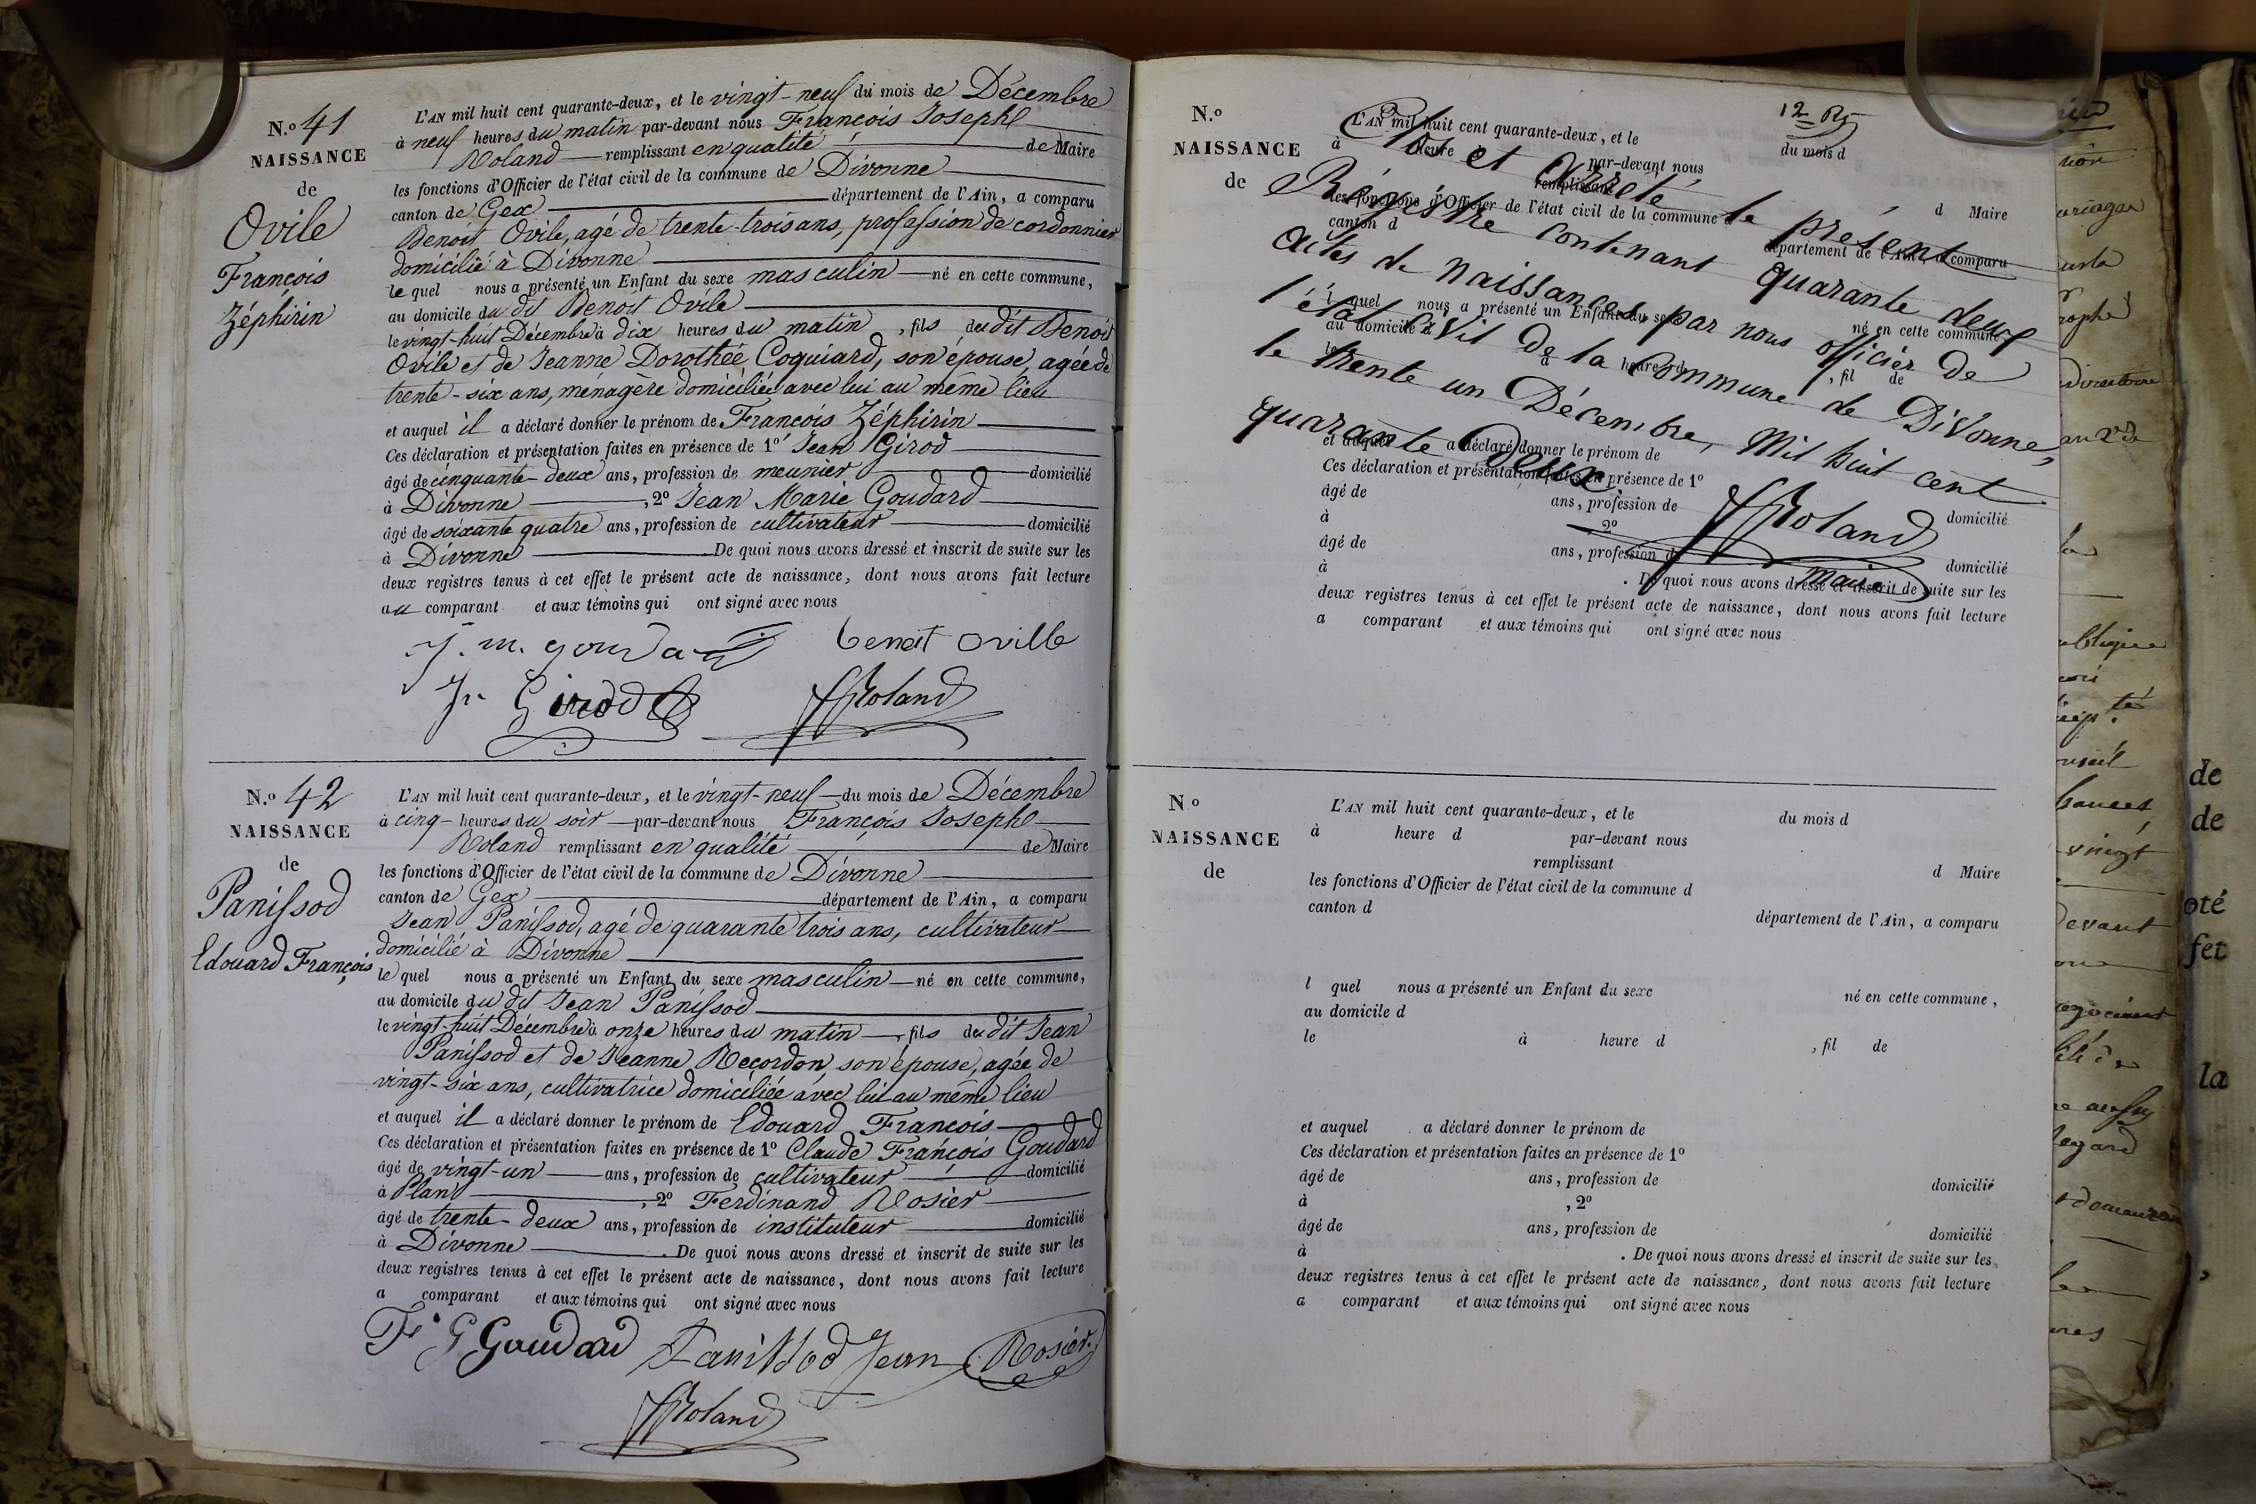 N.o 41
NAISSANCE
de
Ovile
François
Zéphirin
L'AN mil huit cent quarante-deux, et le vingt-neuf du mois de Décembre
à neuf heures du matin par-devant nous François Joseph
Roland remplissant en qualité de Maire
les fonctions d'Officier de l'état civil de la commune de Divonne
canton de Gex département de l'Ain, a comparu
Benoit Ovile, agé de trente-trois ans, profession de cordonnier
domicilié à Divonne
le quel nous a présenté un Enfant du sexe masculin né en cette commune,
au domicile du dit Benoit Ovile
le vingt-huit Décembre à dix heures du matin, fils du dit Benoit
Ovile et de Jeanne Dorothée Coguiard, son épouse, agée de
trente-six ans, ménagère domiciliée avec lui au même lieu
et auquel il a déclaré donner le prénom de François Zéphirin
Ces déclaration et présentation faites en présence de 1o Jean Girod
âgé de cinquante-deux ans, profession de meunier domicilié
à Divonne, 2o Jean Marie Goudard
âgé de soixante quatre ans, profession de cultivateur domicilié
à Divonne De quoi nous avons dressé et inscrit de suite sur les
deux registres tenus à cet effet le présent acte de naissance, dont nous avons fait lecture
au comparant et aux témoins qui ont signé avec nous
J. m. goudard benoit oville
Jn Girod JfRoland
N.o 42
NAISSANCE
de
Panissod
Edouard François
L'AN mil huit cent quarante-deux, et le vingt-neuf du mois de Décembre
à cinq heures du soir par-devant nous François Joseph
Roland remplissant en qualité de Maire
les fonctions d'Officier de l'état civil de la commune de Divonne
canton de Gex département de l'Ain, a comparu
Jean Panissod, agé de quarante trois ans, cultivateur
domicilié à Divonne
le quel nous a présenté un Enfant du sexe masculin né en cette commune,
au domicile du dit Jean Panissod
le vingt-huit Décembre à onze heures du matin, fils du dit Jean
Panissod et de Jeanne Recordon, son épouse, agée de
vingt-six ans, cultivatrice domiciliée avec lui au même lieu
et auquel il a déclaré donner le prénom de Edouard François
Ces déclaration et présentation faites en présence de 1o Claude François Goudard
âgé de vingt-un ans, profession de cultivateur domicilié
à Plan, 2o Ferdinand Rosier
âgé de trente-deux ans, profession de instituteur domicilié
à Divonne. De quoi nous avons dressé et inscrit de suite sur les
deux registres tenus à cet effet le présent acte de naissance, dont nous avons fait lecture
a comparant et aux témoins qui ont signé avec nous
Goudard Panissod Jean Rosier
JfRoland
N.o
NAISSANCE
de
L'AN mil huit cent quarante-deux, et le du mois d
à heure d par-devant nous
remplissant d Maire
les fonctions d'Officier de l'état civil de la commune d
canton d département de l'Ain, a comparu
l quel nous a présenté un Enfant du sexe né en cette commune,
au domicile d
le à heure d, fil de
et auquel a déclaré donner le prénom de
Ces déclaration et présentation faites en présence de 1o
âgé de ans, profession de domicilié
à 2o
âgé de ans, profession de domicilié
à . De quoi nous avons dressé et inscrit de suite sur les
deux registres tenus à cet effet le présent acte de naissance, dont nous avons fait lecture
a comparant et aux témoins qui ont signé avec nous
Clos et arrêté le présent
Régistre contenant quarante deux
actes de naissances par nous officier de
l'état civil de la Commune de Divonne,
le trente un Décembre, mil huit cent
quarante Deux
JfRoland
maire
N o
NAISSANCE
de
L'AN mil huit cent quarante-deux, et le du mois d
à heure d par-devant nous
remplissant d Maire
les fonctions d'Officier de l'état civil de la commune d
canton d département de l'Ain, a comparu
l quel nous a présenté un Enfant du sexe né en cette commune,
au domicile d
le à heure d , fil de
et auquel a déclaré donner le prénom de
Ces déclaration et présentation faites en présence de 1o
âgé de ans, profession de domicilié
à , 2o
âgé de ans, profession de domicilié
à . De quoi nous avons dressé et inscrit de suite sur les
deux registres tenus à cet effet le présent acte de naissance, dont nous avons fait lecture
a comparant et aux témoins qui ont signé avec nous
de
de
oté
fet
la